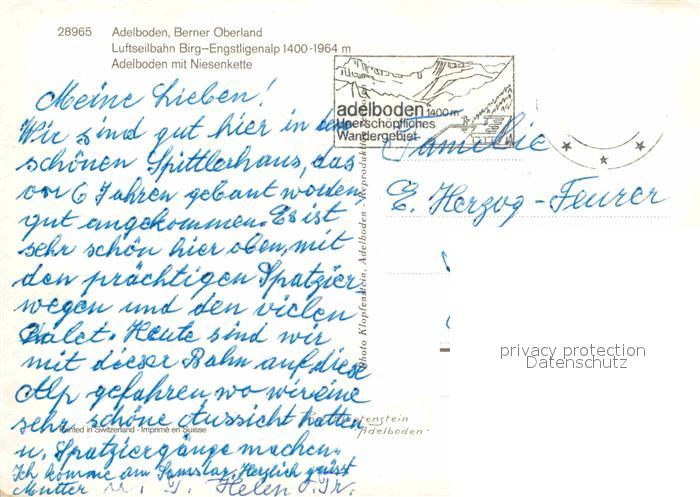 28965 Adelboden, Berner Oberland
Luftseilbahn Birg–Engstligenalp 1400-1964 m
Adelboden mit Niesenkette
adelboden 1400 m
Unerschöpfliches
Wandergebiet
Meine Lieben!
Wir sind gut hier in dem
schönen Spittlerhaus, das
vor 6 Jahren gebaut worden,
gut angekommen. Es ist
sehr schön hier oben, mit
den prächtigen Spatzier
wegen und den vielen
Chalet. Heute sind wir
mit dieser Bahn auf diese
Alp gefahren, wo wir eine
sehr schöne Aussicht hatten
u. Spatziergänge machen.
Ich komme am Samstag. Herzlich grüsst
Mutter u. T. Helen
Familie
E. Herzog-Feurer
Photo Klopfenstein, Adelboden - Reproduktion
Printed in Switzerland - Imprimé en Suisse
Klopfenstein
Adelboden
privacy protection
Datenschutz